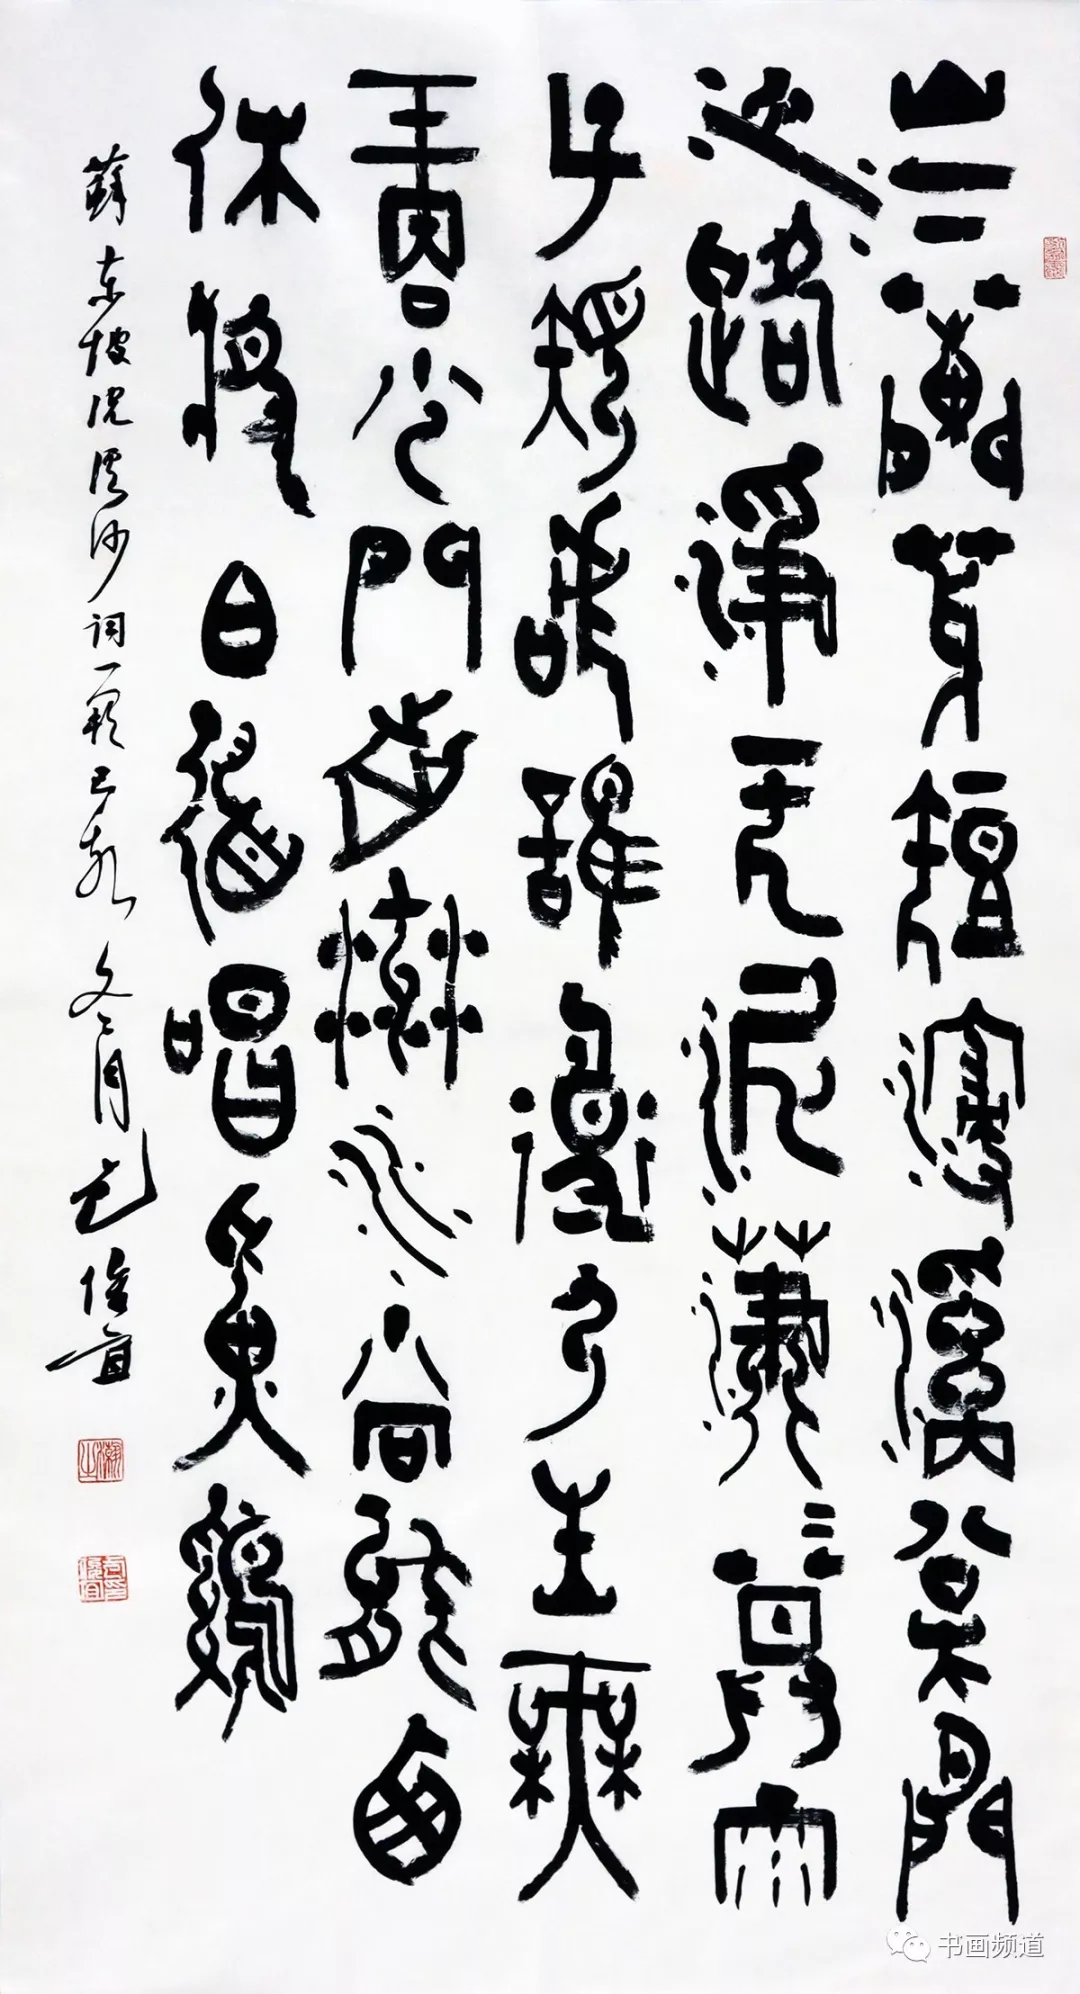 山下蘭芽短浸溪松間
沙路淨无泥瀟〻暮雨
子規啼誰道人生無
再少門前流水尚能西
休將白髮唱黃雞
蘇東坡浣溪沙詞一闋己亥冬月俊宜
书画频道